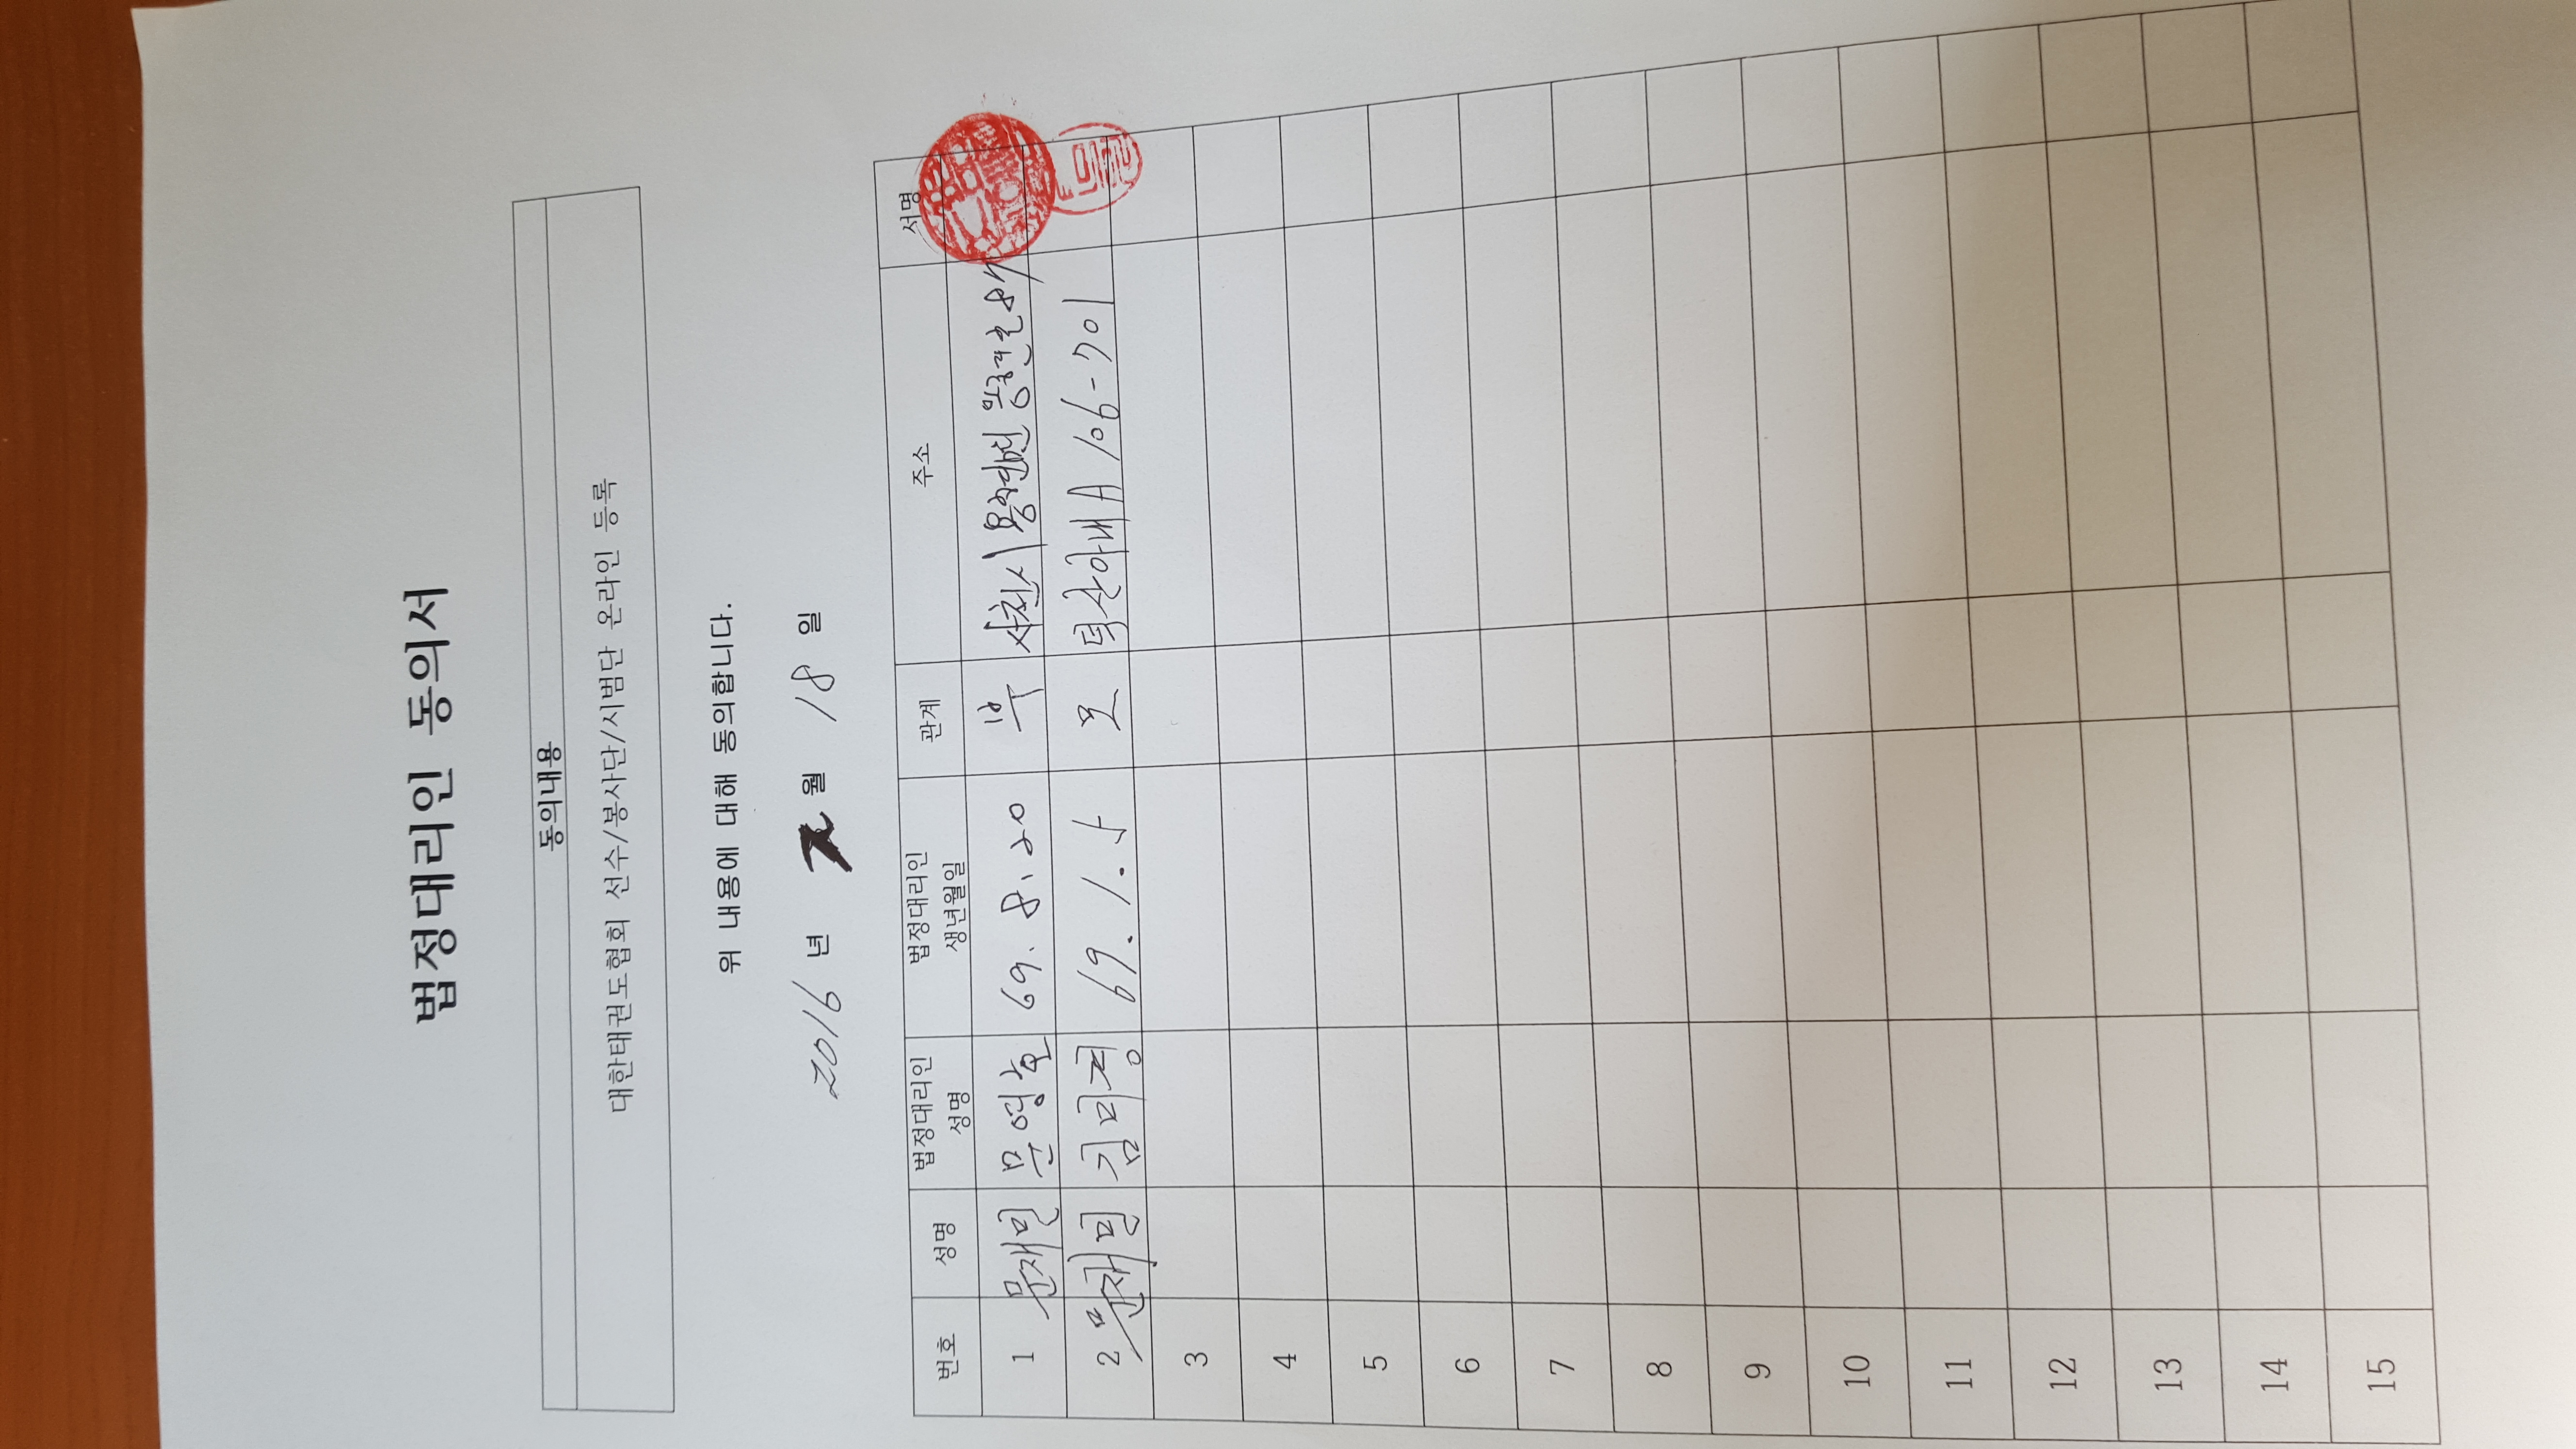 법정대리인 동의서
동의내용
대한태권도협회 선수/봉사단/시범단 온라인 등록
위 내용에 대해 동의합니다.
2016 년 2 월 18 일
번호 성명 법정대리인 성명 법정대리인 생년월일 관계 주소 서명
1 문재민 문영호 69. 8. 20 부 사천시 용현면
2 문재민 김미정 69. 1. 5 모 덕산아내A 106-701
3
4
5
6
7
8
9
10
11
12
13
14
15